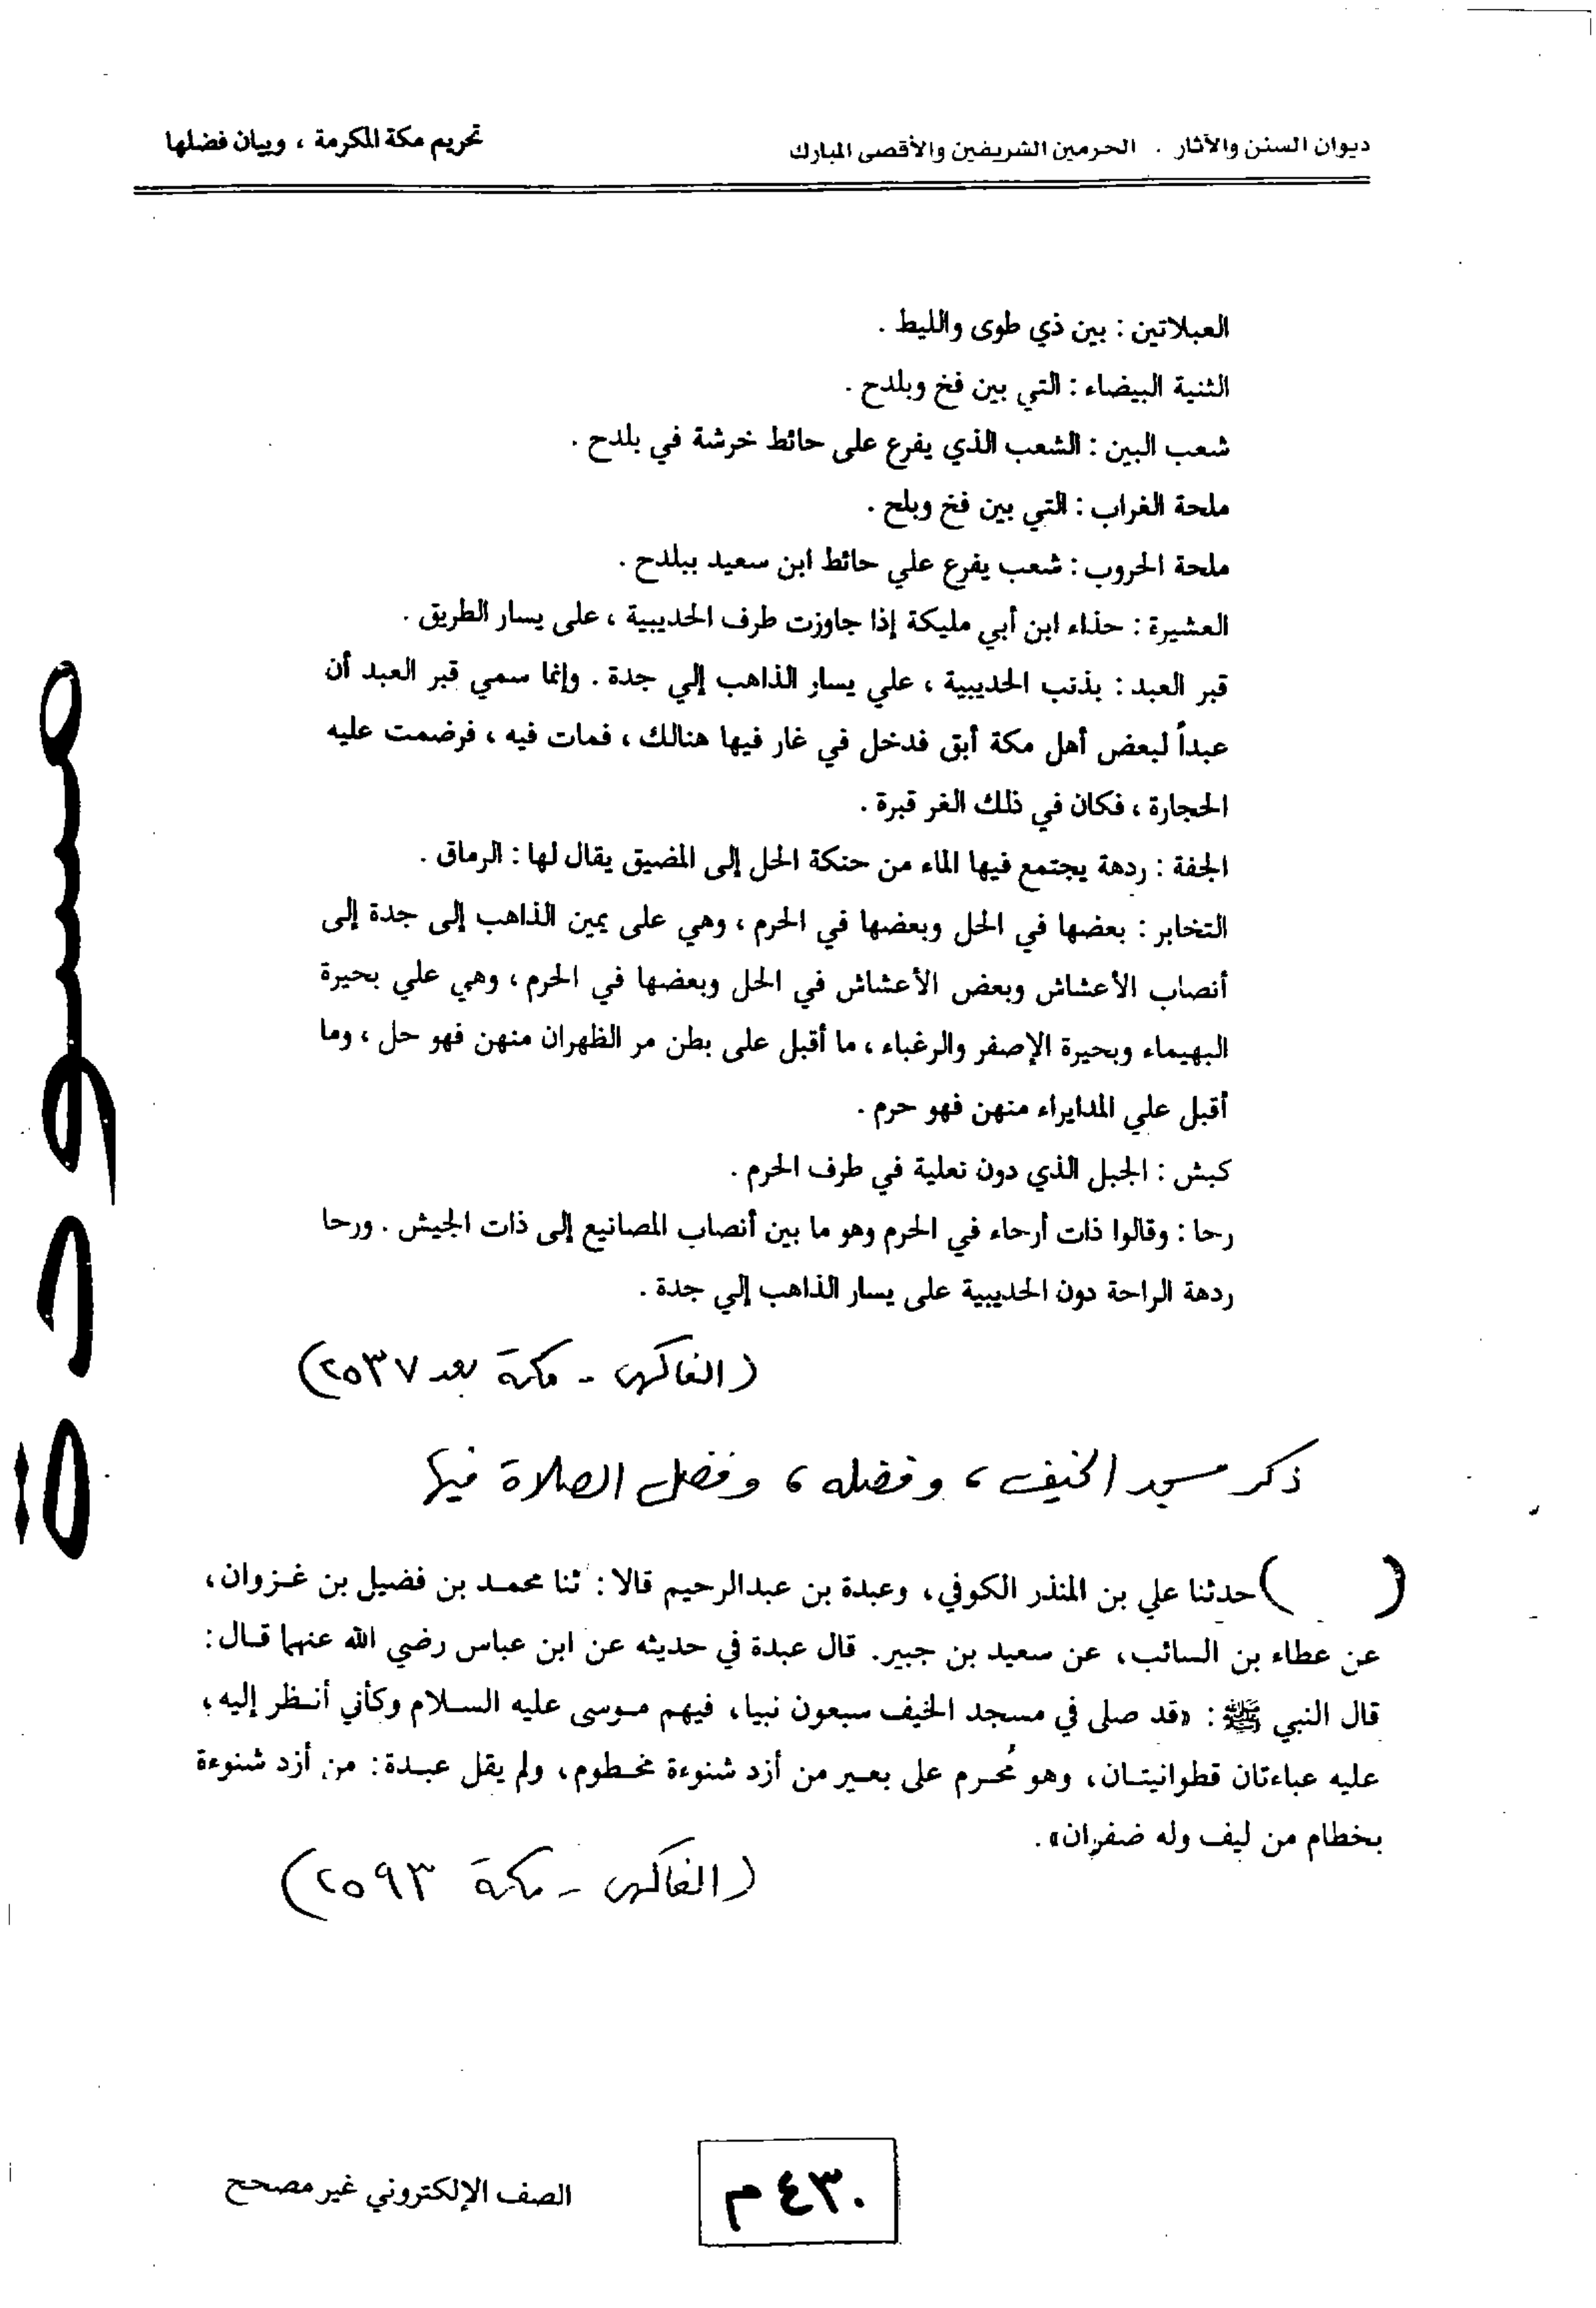 ديوان السنن والآثار . الحرمين الشريفين والأقصى المبارك
تحريم مكة المكرمة ، وبيان فضلها
العبلاتين : بين ذي طوى والليط .
الثنية البيضاء : التي بين فخ وبلدح .
شعب البين : الشعب الذي يفرع على حائط خرشة في بلدح .
ملحة الغراب : التي بين فخ وبلح .
ملحة الحروب : شعب يفرع علي حائط ابن سعيد ببلدح .
العشيرة : حذاء ابن أبي مليكة إذا جاوزت طرف الحديبية ، على يسار الطريق .
قبر العبد : بذنب الحديبية ، علي يسار الذاهب إلي جدة . وإنما سمي قبر العبد أن
عبداً لبعض أهل مكة أبق فدخل في غار فيها هنالك ، فمات فيه ، فرضمت عليه
الحجارة ، فكان في ذلك الغر قبرة .
الجفة : ردهة يجتمع فيها الماء من حنكة الحل إلى المضيق يقال لها : الرماق .
التخابر : بعضها في الحل وبعضها في الحرم ، وهي على يمين الذاهب إلى جدة إلى
أنصاب الأعشاش وبعض الأعشاش في الحل وبعضها في الحرم ، وهي علي بحيرة
البهيماء وبحيرة الإصفر والرغباء ، ما أقبل على بطن مر الظهران منهن فهو حل ، وما
أقبل علي المدايراء منهن فهو حرم .
كبش : الجبل الذي دون نعلية في طرف الحرم .
رحا : وقالوا ذات أرحاء في الحرم وهو ما بين أنصاب المصانيع إلى ذات الجيش . ورحا
ردهة الراحة دون الحديبية على يسار الذاهب إلي جدة .
(الفاكهي - مكة بعد ٢٥٣٧)
ذكر مسجد الخيف ، وفضله ، وفضل الصلاة فيها
( ) حدثنا علي بن المنذر الكوفي، وعبدة بن عبدالرحيم قالا : ثنا محمد بن فضيل بن غزوان،
عن عطاء بن السائب، عن سعيد بن جبير. قال عبدة في حديثه عن ابن عباس رضي الله عنهما قال :
قال النبي ﷺ : «قد صلى في مسجد الخيف سبعون نبيا، فيهم موسى عليه السلام وكأني أنظر إليه،
عليه عباءتان قطوانيتان، وهو مُحرم على بعير من أزد شنوءة مخطوم، ولم يقل عبدة : من أزد شنوءة
بخطام من ليف وله ضفران» .
(الفاكهي - مكة ٢٥٩٣)
مسودة
٤٣٠ م
الصف الإلكتروني غير مصحح